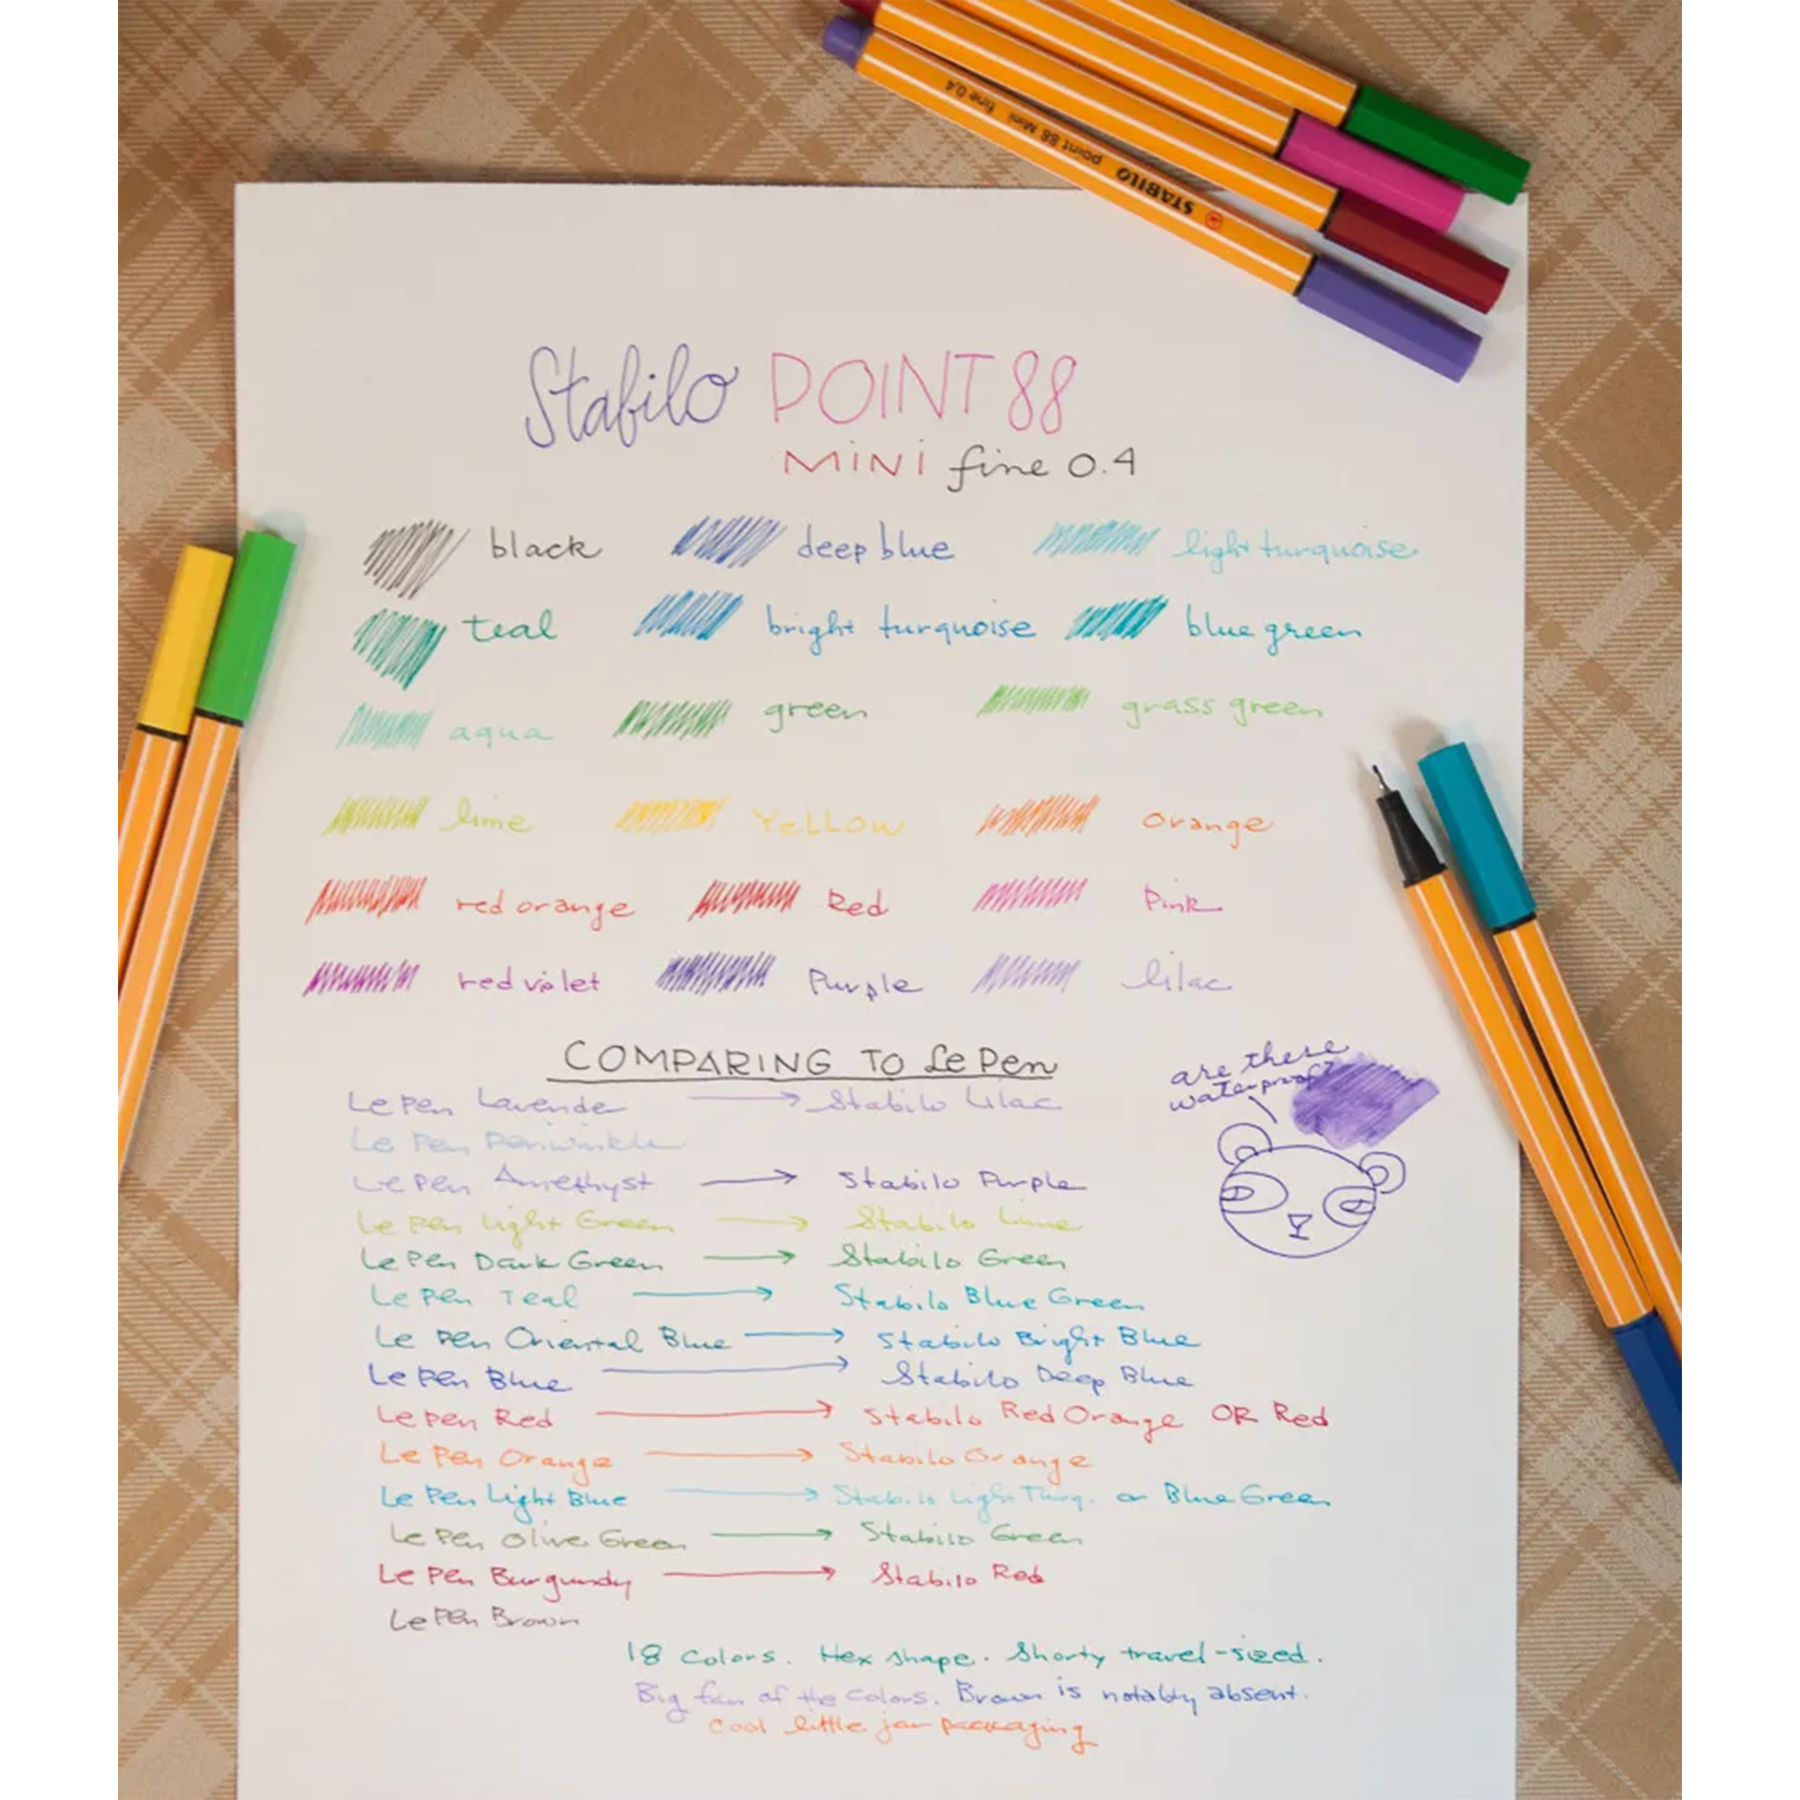 STABILO point 88 Mini fine 0.4
Stabilo POINT 88
MINI fine 0.4
black deep blue light turquoise
teal bright turquoise blue green
aqua green grass green
lime YELLOW orange
red orange Red Pink
red violet Purple lilac
COMPARING TO Le Pen
are these
waterproof?
Le Pen Lavender → Stabilo Lilac
Le Pen Periwinkle
Le Pen Amethyst → Stabilo Purple
Le Pen Light Green → Stabilo Lime
Le Pen Dark Green → Stabilo Green
Le Pen Teal → Stabilo Blue Green
Le Pen Oriental Blue → Stabilo Bright Blue
Le Pen Blue → Stabilo Deep Blue
Le Pen Red → Stabilo Red Orange OR Red
Le Pen Orange → Stabilo Orange
Le Pen Light Blue → Stabilo Light Turq. or Blue Green
Le Pen Olive Green → Stabilo Green
Le Pen Burgundy → Stabilo Red
Le Pen Brown
18 Colors. Hex shape. Shorty travel-sized.
Big fan of the colors. Brown is notably absent.
Cool little jar packaging